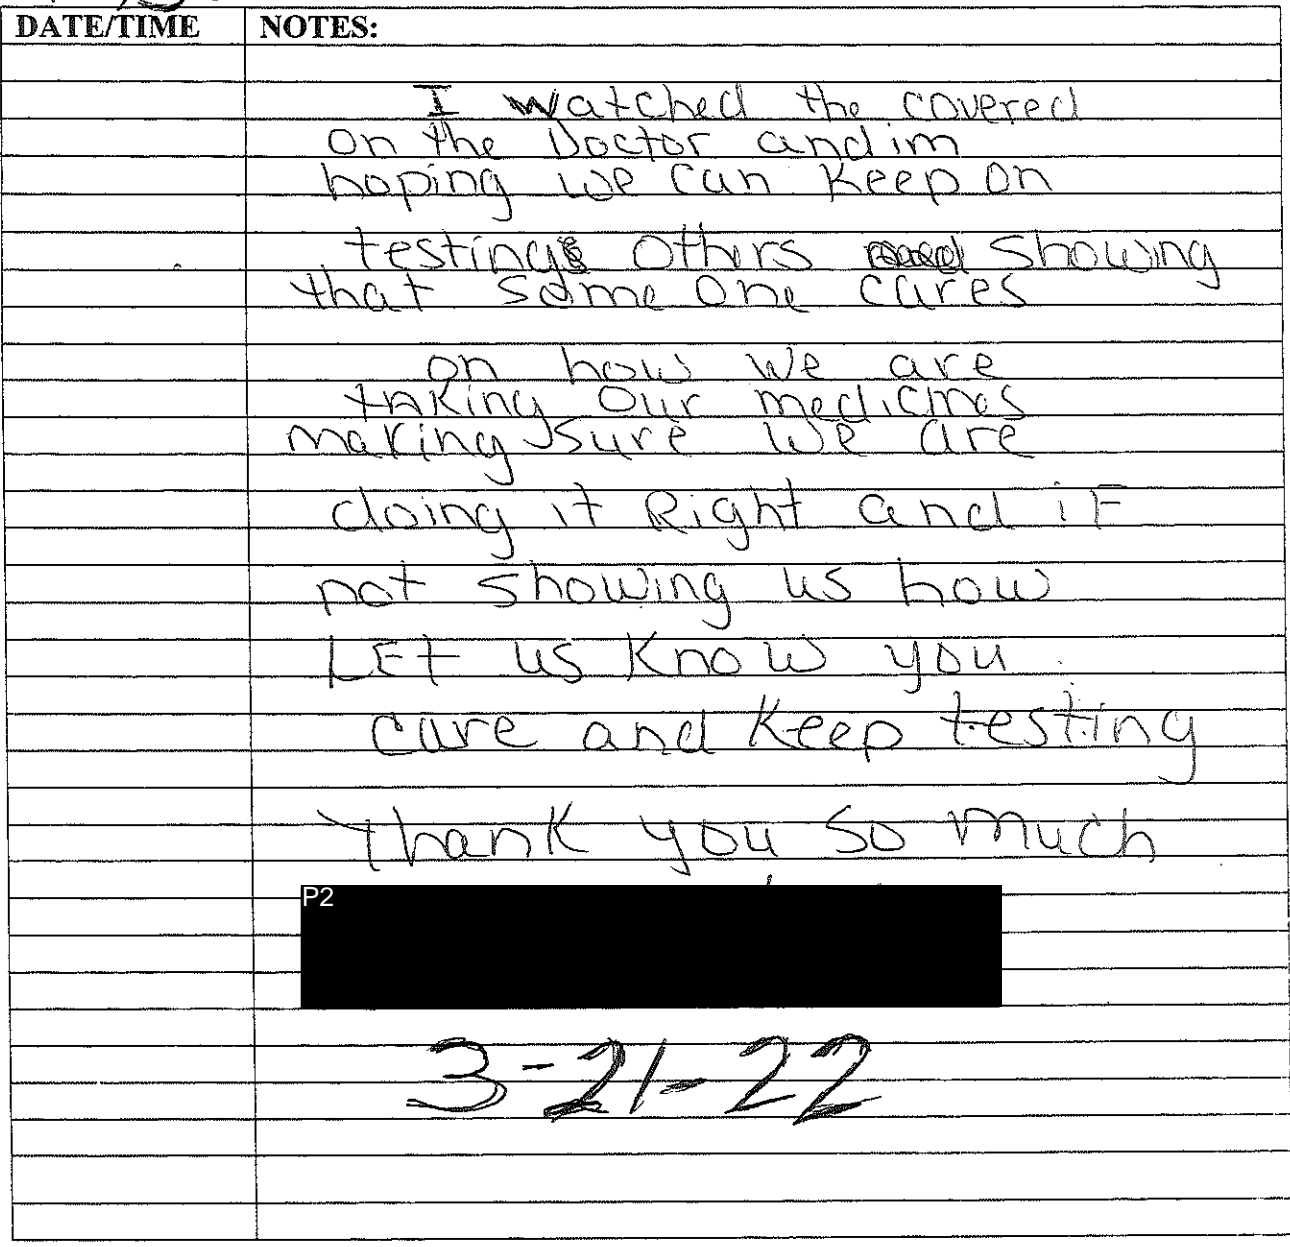 DATE/TIME NOTES:
I watched the covered
on the Doctor and im
hoping we can Keep on
testing others showing
that some one cares
on how we are
taking our medicines
making sure we are
doing it Right and iF
not showing us how
LEt us Know you
care and Keep testing
Thank you so much
P2
3-21-22